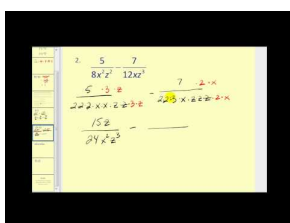 2. 5/8x²z² − 7/12xz³
5 ·3 ·z / 2·2·2·x·x·z·z·3·z − 7 ·2·x / 2·2·3·x·z·z·z·2·x
15z / 24x²z³ −